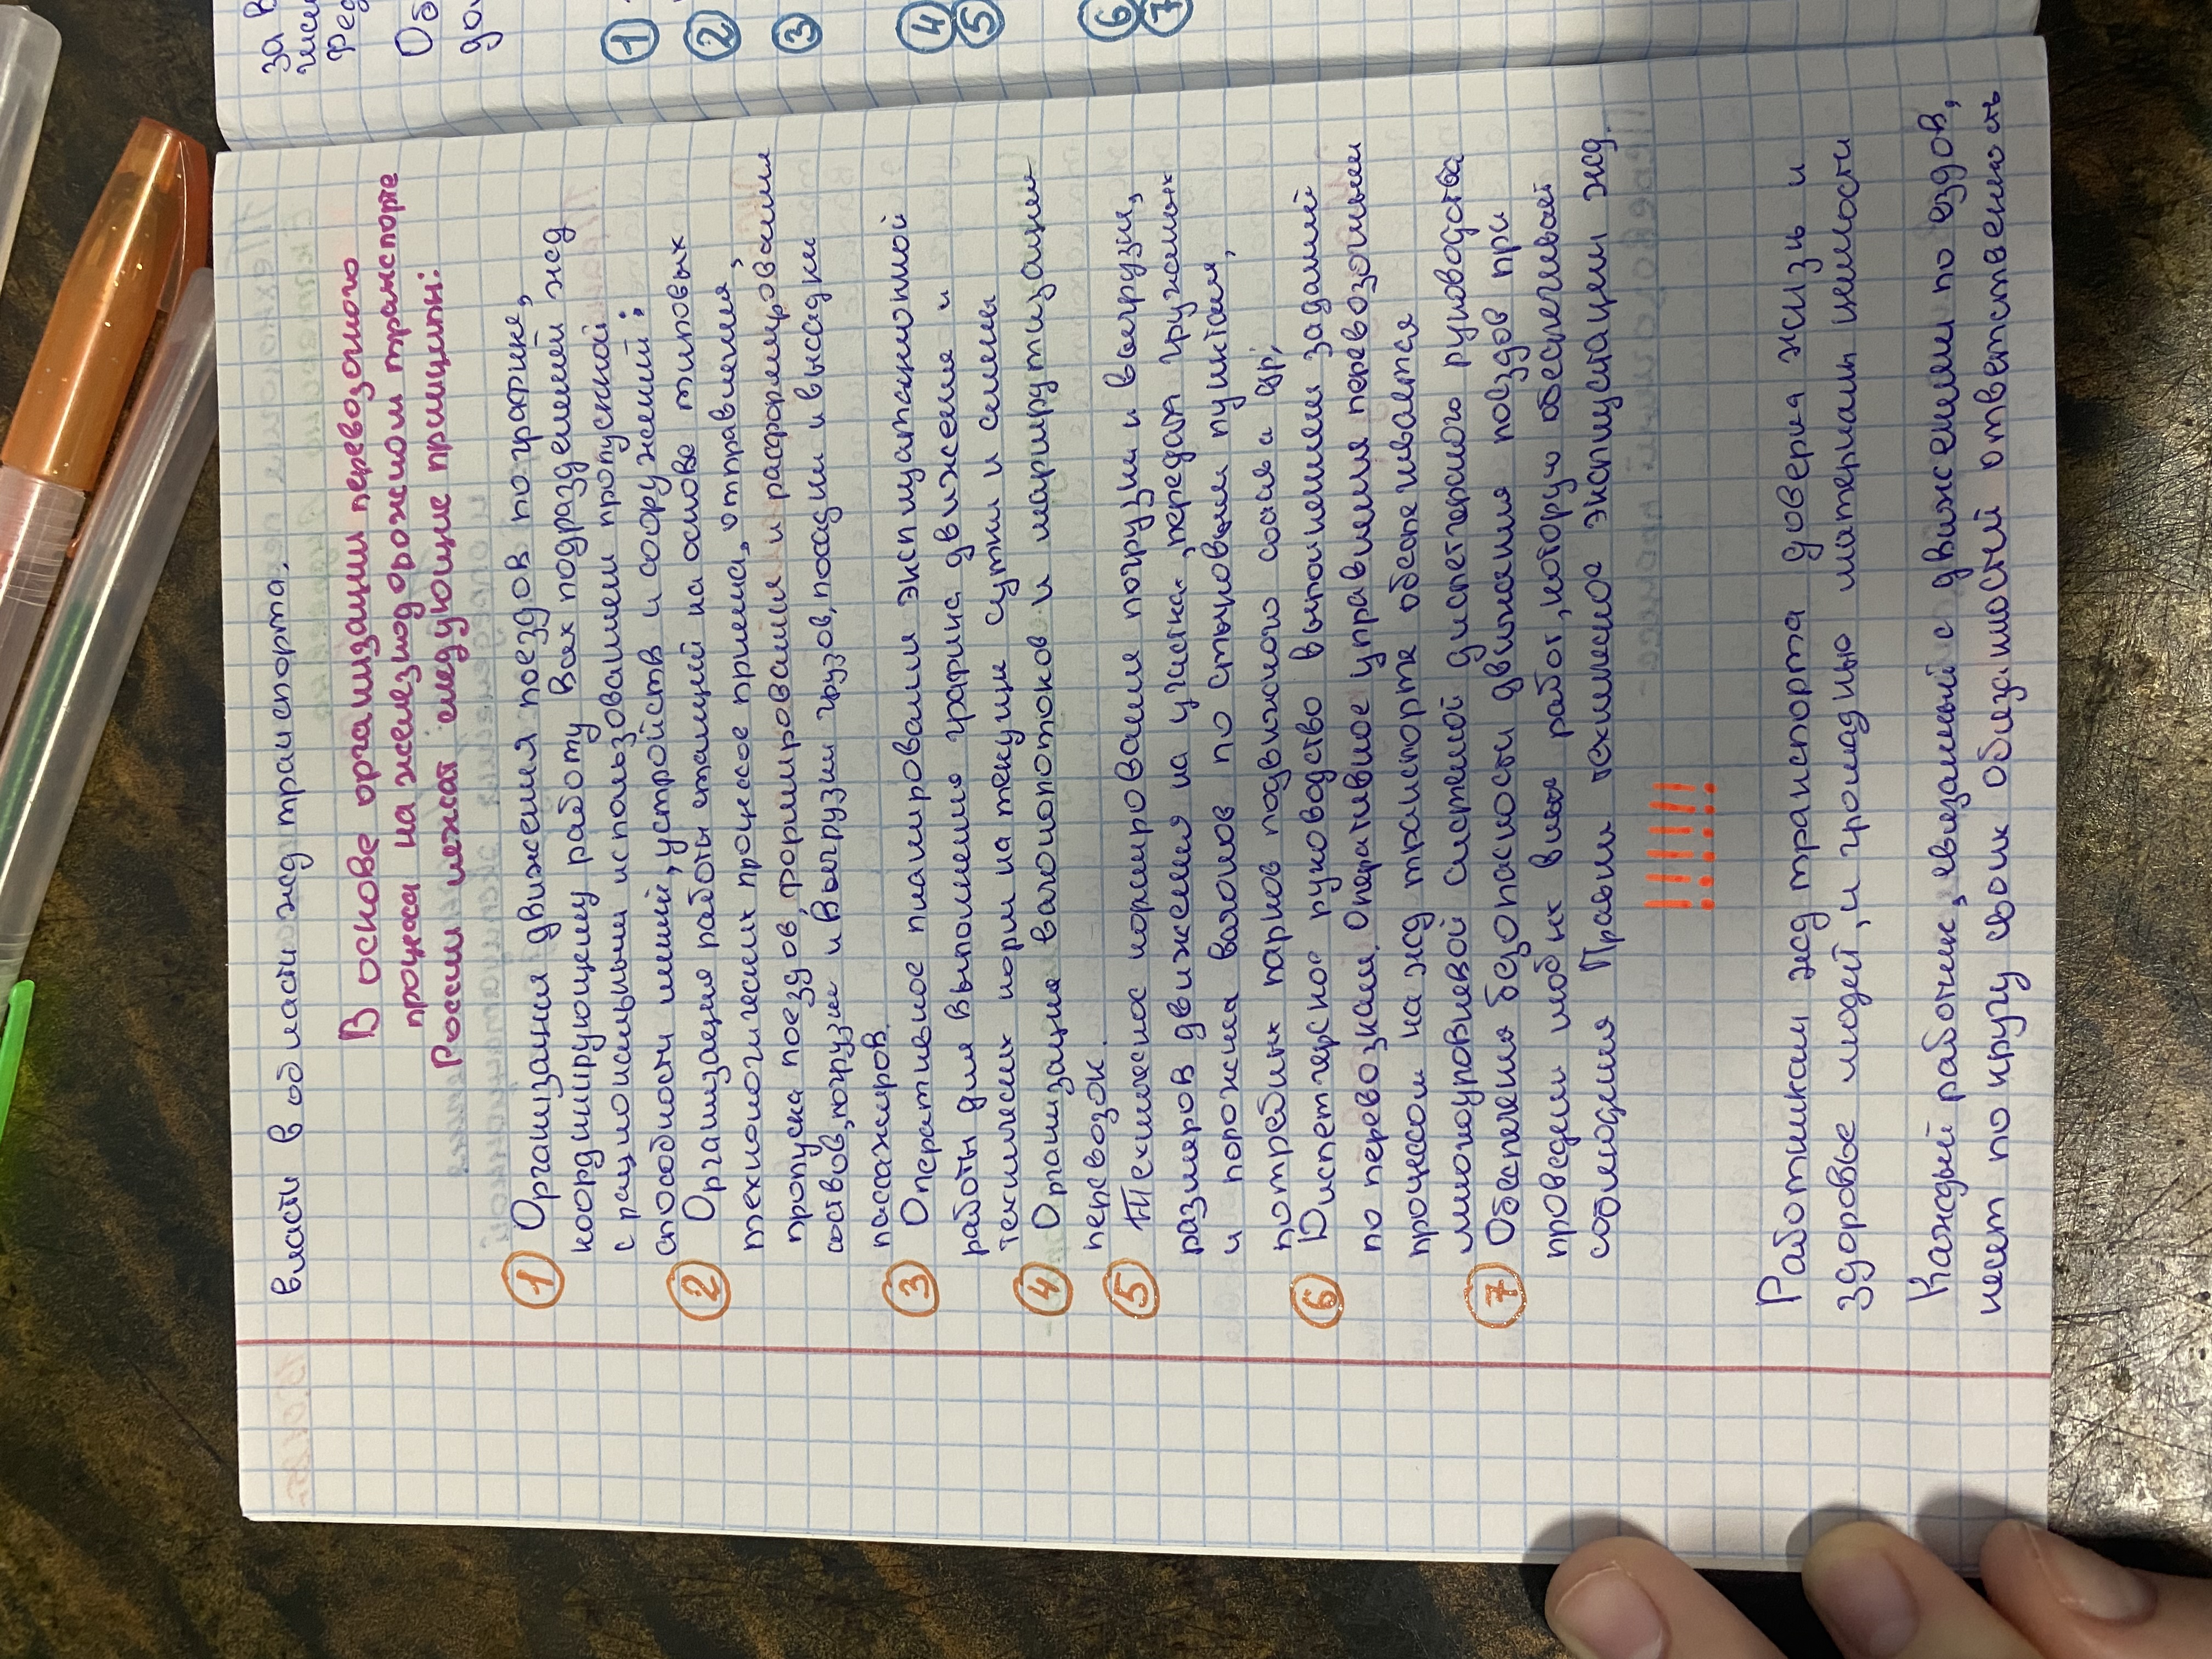 власти в области жд транспорта.
В основе организации перевозочного
процесса на железнодорожном транспорте
России лежат следующие принципы:
① Организация движения поездов по графике,
координирующему работу всех подразделений жд
с рациональным использованием пропускной
способности линий, устройств и сооружений:
② Организация работы станций на основе типовых
технологических процессов приема, отправления,
пропуска поездов, формировании и расформировании
составов, погрузки и выгрузки грузов, посадки и высадки
пассажиров.
③ Оперативное планировании эксплуатационной
работы для выполнения графика движение и
технических норм на текущие сутки и смены
④ Организация вагонопотоков и маршрутизации
перевозок.
⑤ Техническое нормирование погрузки и выгрузки,
размеров движения на участках, передача груженых
и порожних вагонов по стыковым пунктам,
потребных парков подвижного состава др;
⑥ Диспетчерское руководство выполнением заданий
по перевозкам. Оперативное управления перевозочным
процессом на жд транспорте обеспечивается
многоуровневой системой диспетчерского руководства
⑦ Обеспечения безопасности движения поездов при
проведении любых видов работ, которую обеспечивает
соблюдения Правил технической эксплуатации жд.
!!!!!!!
Работникам жд транспорта доверна жизнь и
здоровье людей, и громадные материалы ценности
Каждый работник, связанный с движением поездов,
несет по кругу своих обязаностей ответственность
за в
Об
①
②
③
④
⑤
⑥
⑦